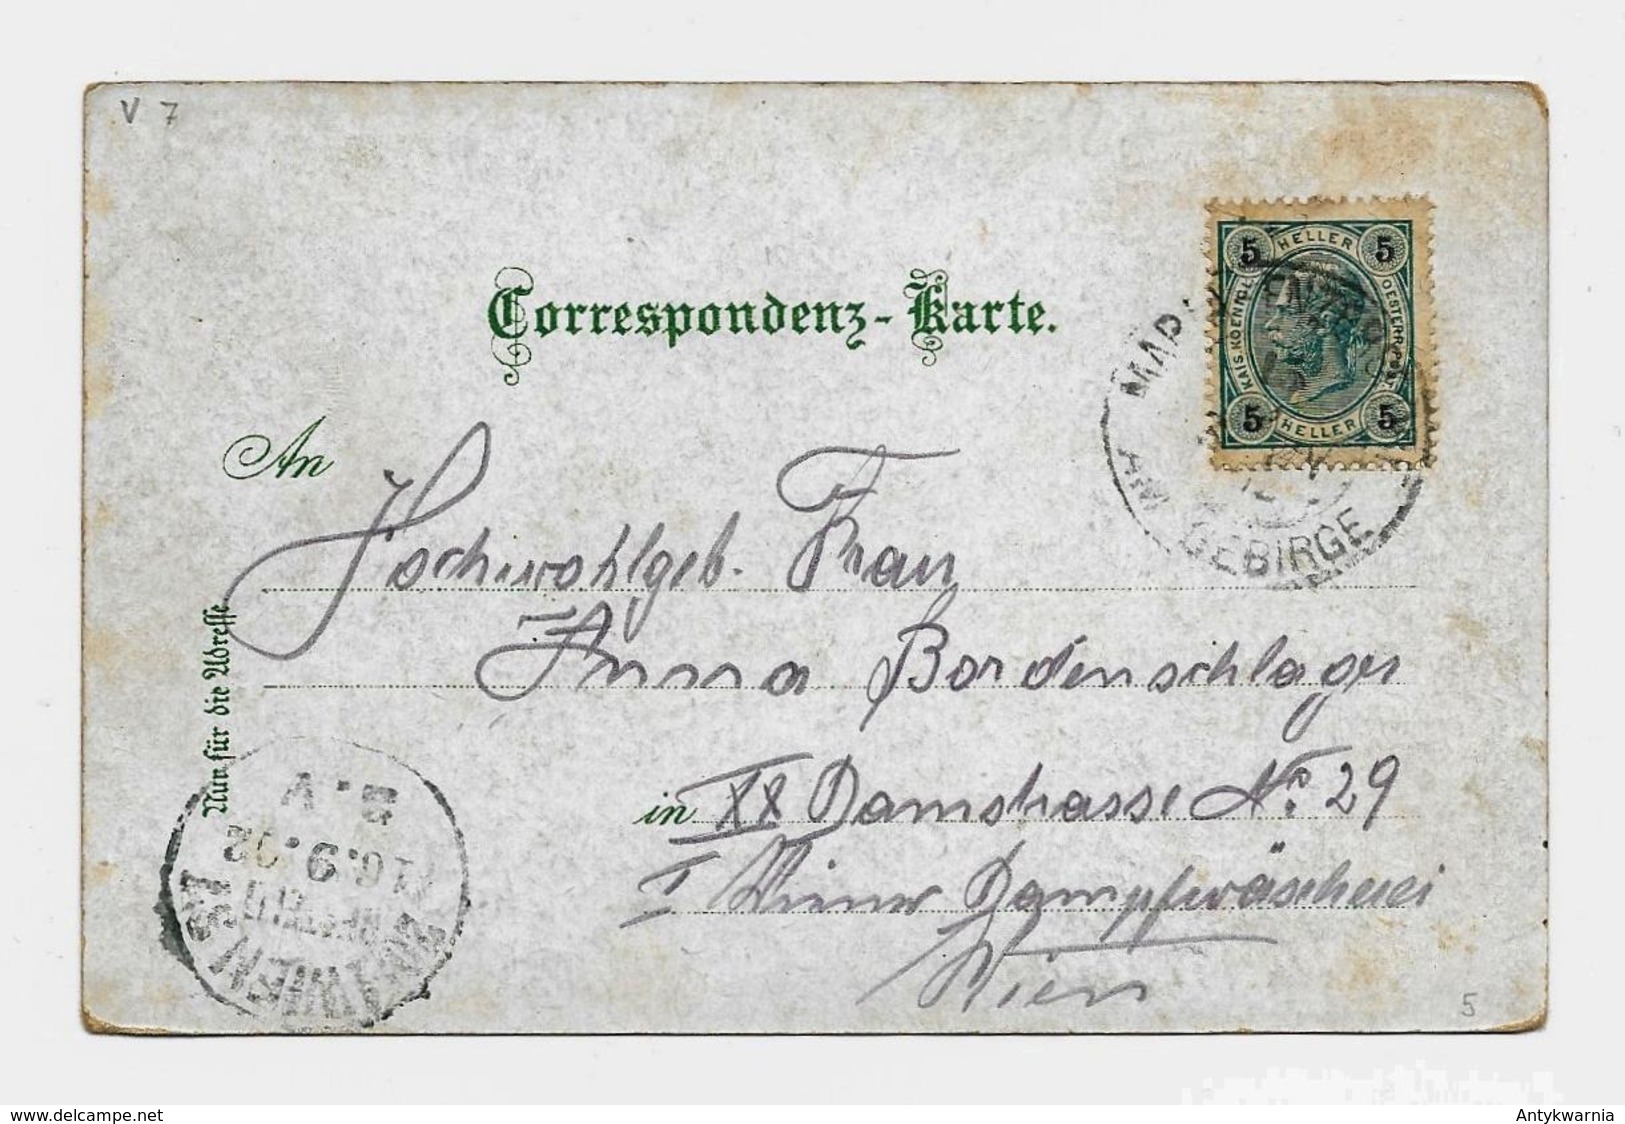 V 7
Correspondenz-Karte.
5 HELLER 5
KAIS. KOENIGL. OESTERR. POST
5 HELLER 5
AM GEBIRGE
An
Hochwohlgeb. Frau
Anna Bordenschlager
in XX Damstrasse No. 29
I Wiener Dampfwäscherei
Wien
Nur für die Adresse
16.9.02
BESTELLT
WIEN
5
delcampe.net
Antykwarnia